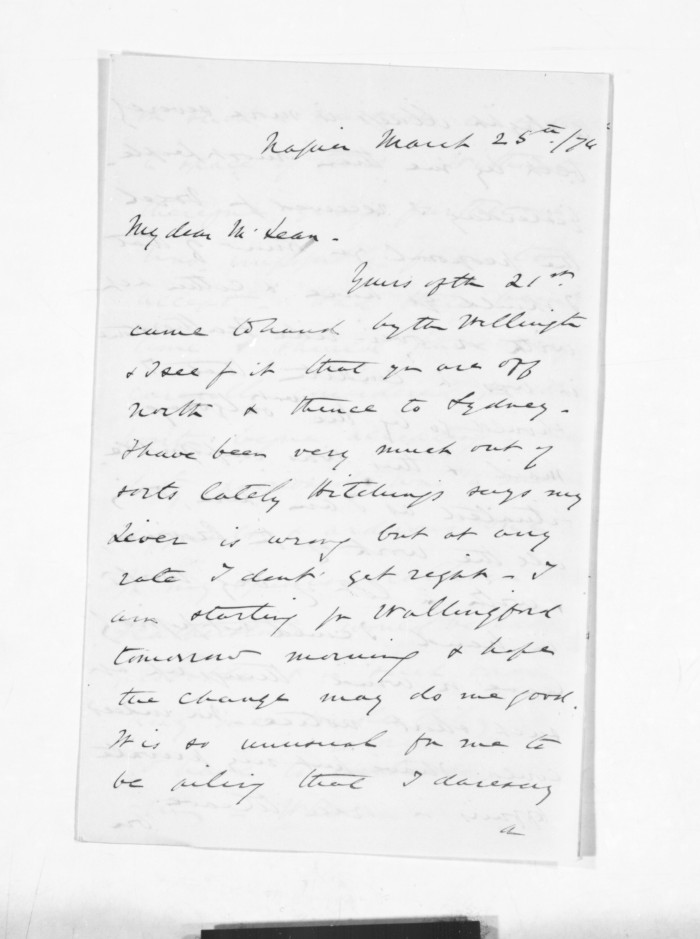 Napier March 25th /74
My dear McLean -
Yours of the 21st
came to hand by the Wellington
& I see f it that yu are off
north & thence to Sydney -
I have been very much out of
sorts lately Hitchings says my
Liver is wrong but at any
rate I dont get right - I
am starting for Wallingford
tomorrow morning & hope
the change may do me good.
It is so unusual for me to
be ailing that I daresay
a